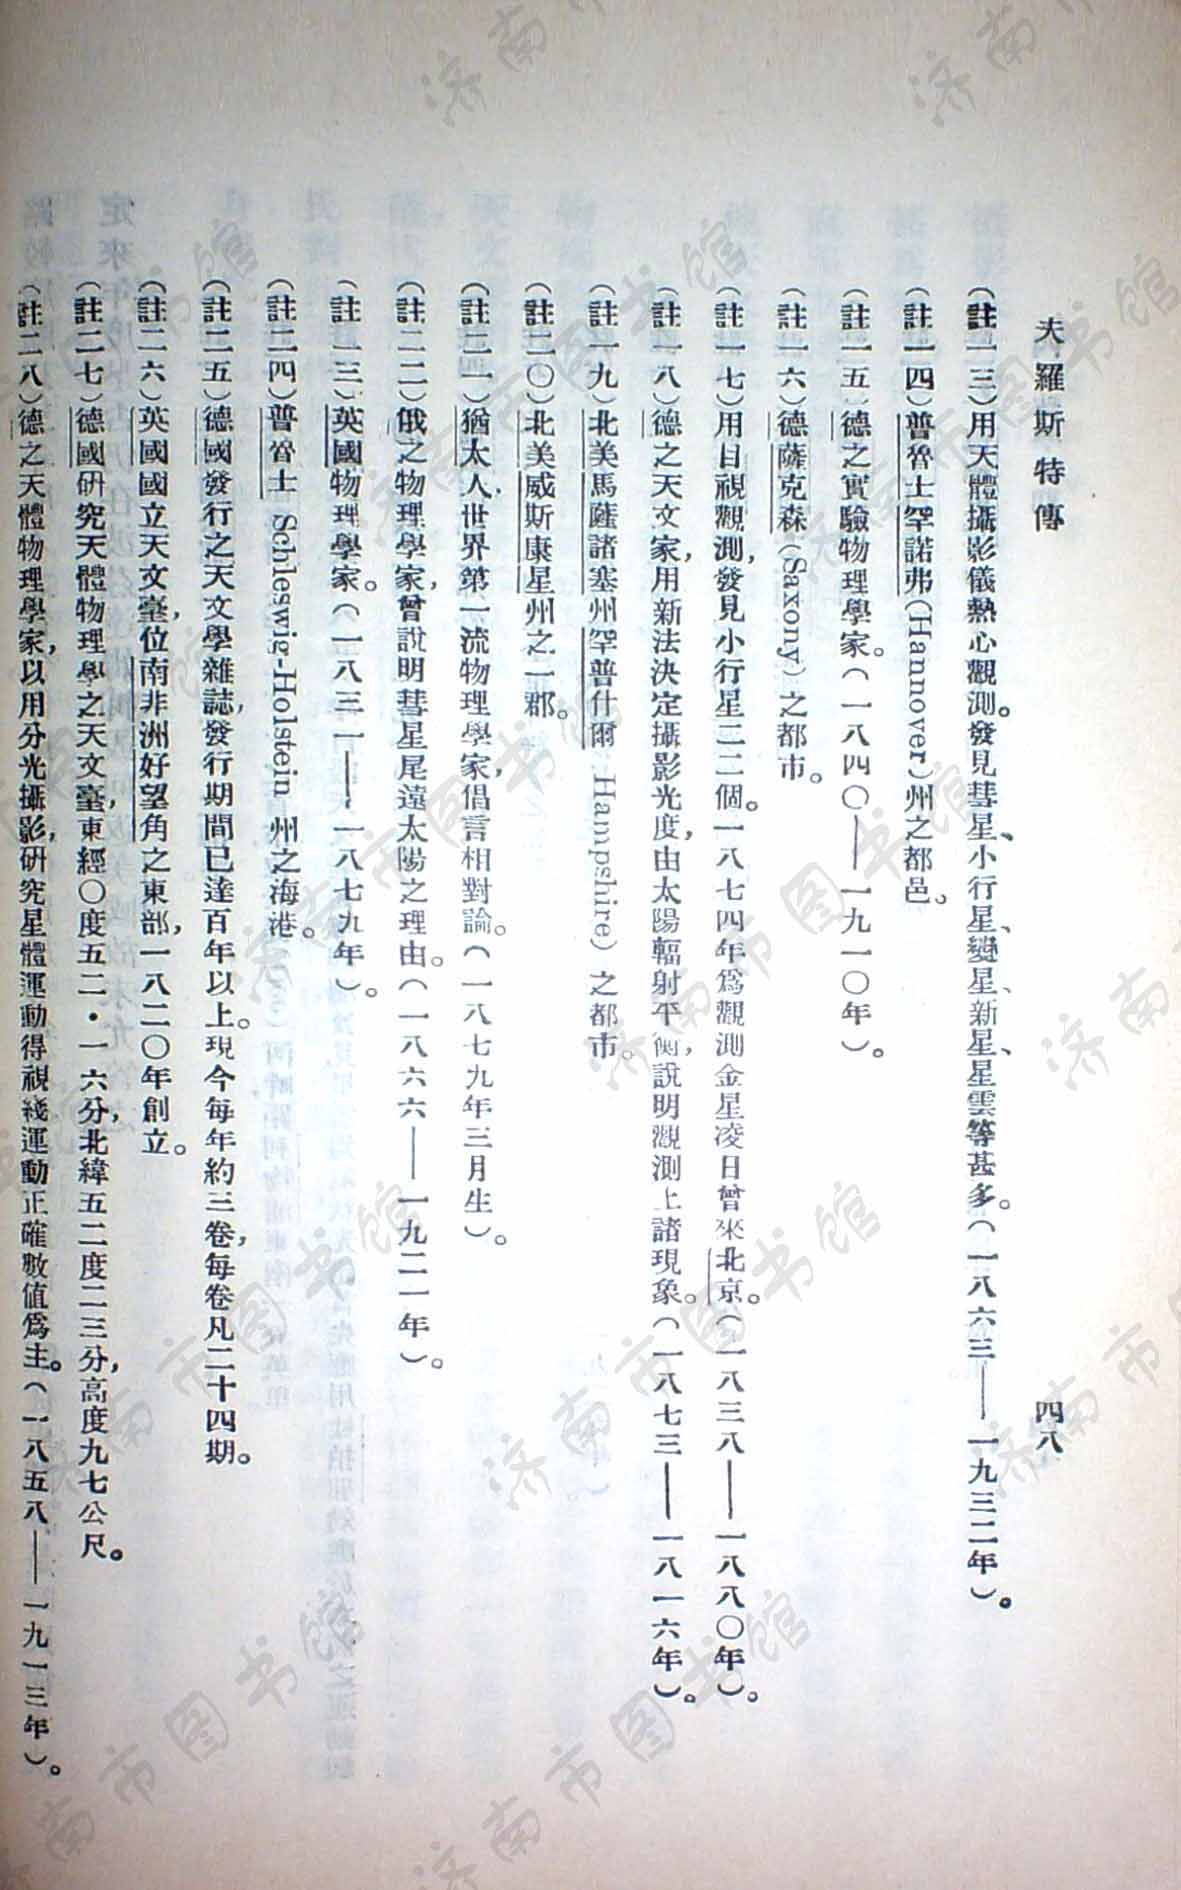 夫羅斯特傳
四八
(註一三)用天體攝影儀熱心觀測。發見彗星、小行星、變星、新星、星雲等甚多。(一八六三——一九三二年)。
(註一四)普魯士罕諾弗(Hannover)州之都邑。
(註一五)德之實驗物理學家。(一八四〇——一九一〇年)。
(註一六)德薩克森(Saxony)之都市。
(註一七)用目視觀測,發見小行星二二個。一八七四年爲觀測金星凌日曾來北京。(一八三八——一八八〇年)。
(註一八)德之天文家,用新法決定攝影光度,由太陽輻射平衡,說明觀測上諸現象。(一八七三——一八一六年)。
(註一九)北美馬薩諸塞州罕普什爾(Hampshire)之都市。
(註二〇)北美威斯康星州之一郡。
(註二一)猶太人,世界第一流物理學家,倡言相對論。(一八七九年三月生)。
(註二二)俄之物理學家,曾說明彗星尾遠太陽之理由。(一八六六——一九二一年)。
(註二三)英國物理學家。(一八三一——一八七九年)。
(註二四)普魯士 Schleswig-Holstein 州之海港。
(註二五)德國發行之天文學雜誌,發行期間已達百年以上。現今每年約三卷,每卷凡二十四期。
(註二六)英國國立天文臺,位南非洲好望角之東部,一八二〇年創立。
(註二七)德國研究天體物理學之天文臺,東經〇度五二·一六分,北緯五二度二三分,高度九七公尺。
(註二八)德之天體物理學家,以用分光攝影,研究星體運動得視綫運動正確數值爲主。(一八五八——一九一三年)。
济南市图书馆